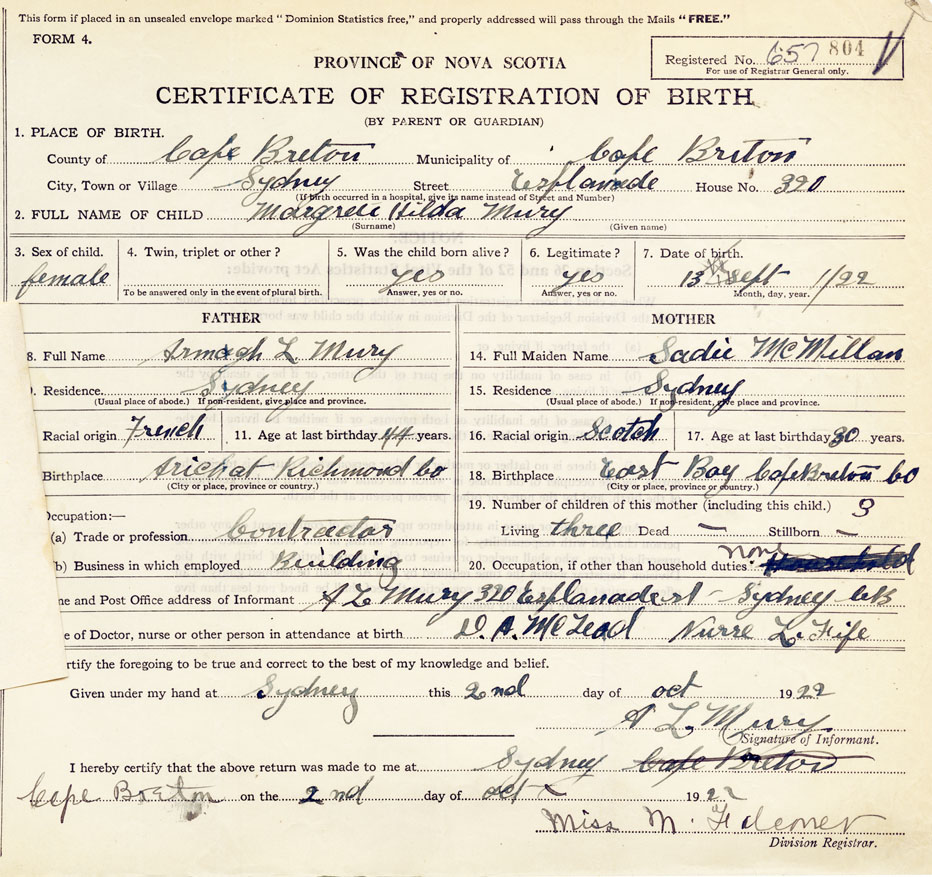 This form if placed in an unsealed envelope marked "Dominion Statistics free," and properly addressed will pass through the Mails "FREE."
FORM 4.
Registered No. 657 804
For use of Registrar General only.
PROVINCE OF NOVA SCOTIA
CERTIFICATE OF REGISTRATION OF BIRTH
(BY PARENT OR GUARDIAN)
1. PLACE OF BIRTH.
County of Cape Breton Municipality of Cape Breton
City, Town or Village Sydney Street Esplanade House No. 320
(If birth occurred in a hospital, give its name instead of Street and Number)
2. FULL NAME OF CHILD Margrett Hilda Mury
(Surname) (Given name)
3. Sex of child. 4. Twin, triplet or other? 5. Was the child born alive? 6. Legitimate? 7. Date of birth.
female yes yes 13 Sept 1/22
To be answered only in the event of plural birth. Answer, yes or no. Answer, yes or no. Month, day, year.
FATHER MOTHER
8. Full Name Armagh L. Mury 14. Full Maiden Name Sadie McMillan
. Residence. Sydney 15. Residence Sydney
(Usual place of abode.) If non-resident, give place and province. (Usual place of abode.) If non-resident, give place and province.
Racial origin French 11. Age at last birthday 44 years. 16. Racial origin Scotch 17. Age at last birthday 30 years.
Birthplace Arichat Richmond Co 18. Birthplace East Bay Cape Breton Co
(City or place, province or country.) (City or place, province or country.)
19. Number of children of this mother (including this child.) 3
Occupation:—
(a) Trade or profession Contractor Living three Dead — Stillborn —
b) Business in which employed Building 20. Occupation, if other than household duties: None Household
ne and Post Office address of Informant A L Mury 320 Esplanade st - Sydney CB
e of Doctor, nurse or other person in attendance at birth D. A. McLeod Nurse L. Fife
rtify the foregoing to be true and correct to the best of my knowledge and belief.
Given under my hand at Sydney this 2nd day of oct 1922
A L. Mury
Signature of Informant.
I hereby certify that the above return was made to me at Sydney Cape Breton
Cape Breton on the 2nd day of oct 1922
Miss M.
Division Registrar.